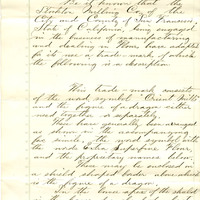 Be it known that the
Stockton Milling Co, of the
City and County of San Francisco,
State of California, being engaged
in the business of manufacturing
and dealing in Flour have adopted
for its use a trade mark, of which
the following is a description
This trade-mark consists
of the word symbol "Orient Mills"
and the figure of a dragon either
used together or separately.
They have generally been arranged
as shown in the accompanying
fac-simile, the word symbol with
the words Extra Superfine Flour,
and the proprietary names below.
These may be enclosed in
a shield shaped border above which
is the figure of a dragon.
In the lower apex of the shield